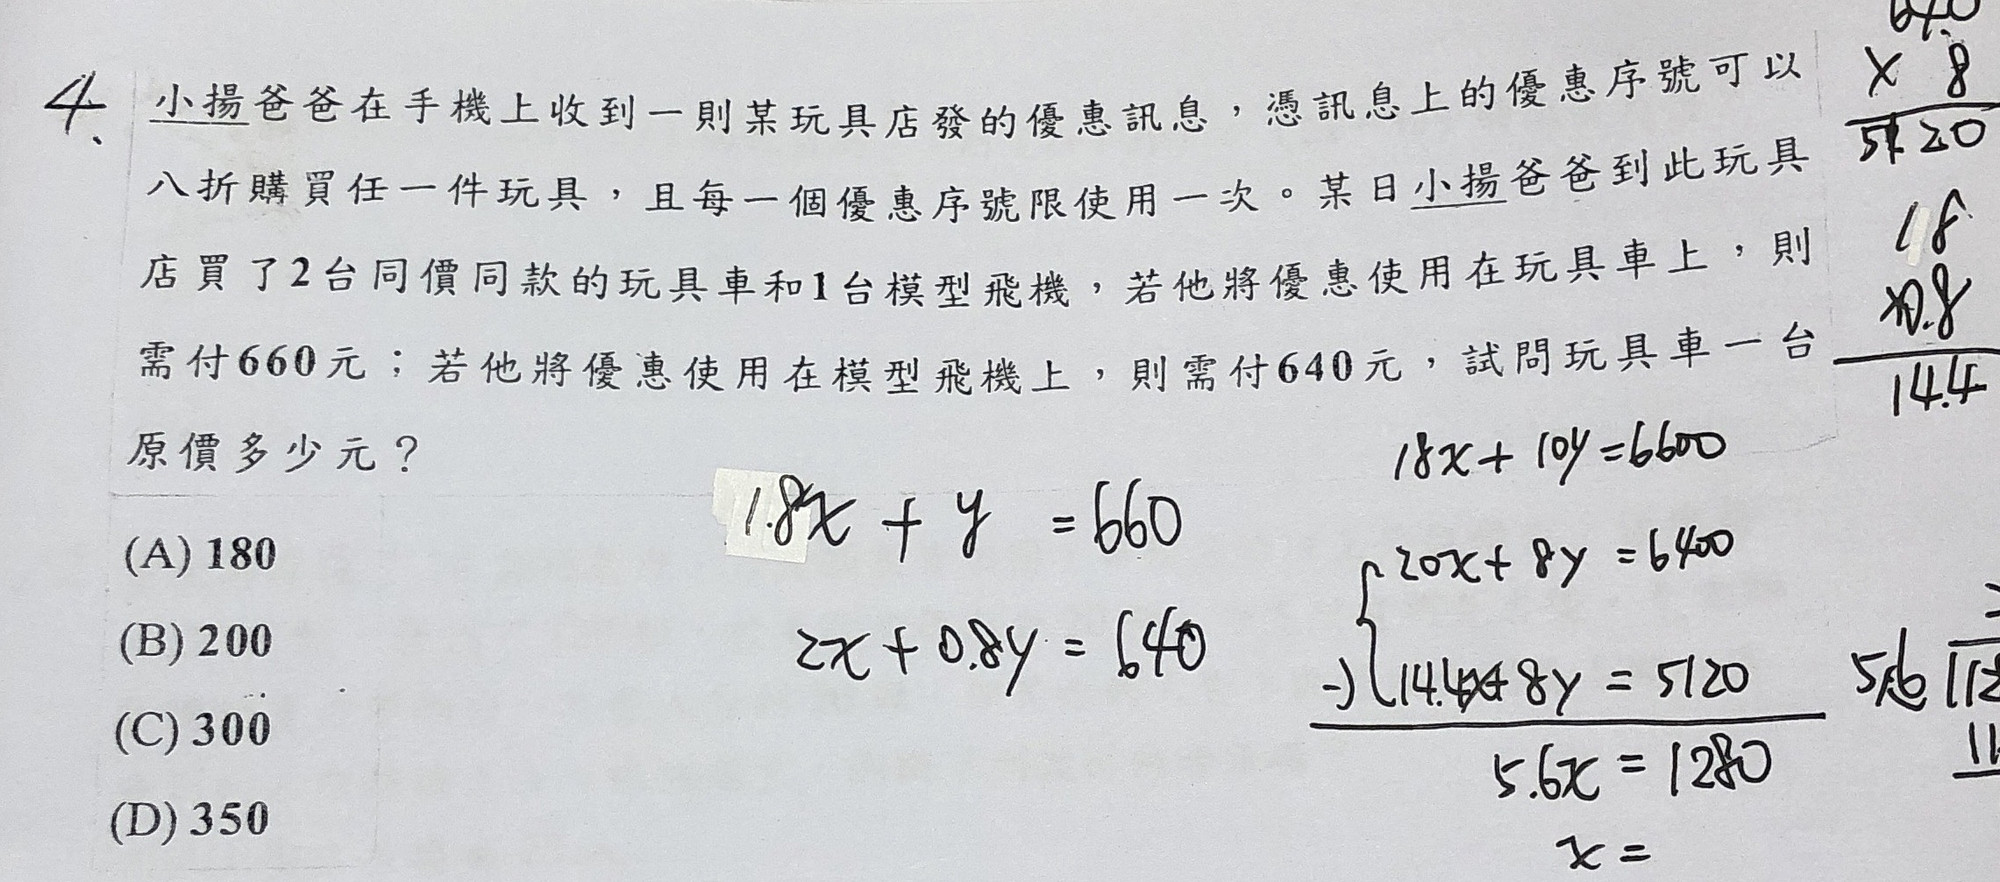 4. 小揚爸爸在手機上收到一則某玩具店發的優惠訊息，憑訊息上的優惠序號可以
八折購買任一件玩具，且每一個優惠序號限使用一次。某日小揚爸爸到此玩具
店買了2台同價同款的玩具車和1台模型飛機，若他將優惠使用在玩具車上，則
需付660元；若他將優惠使用在模型飛機上，則需付640元，試問玩具車一台
原價多少元？
(A) 180
(B) 200
(C) 300
(D) 350
1.8x + y = 660
2x + 0.8y = 640
18x + 10y = 6600
20x + 8y = 6400
-) 14.4x + 8y = 5120
5.6x = 1280
x =
640
x 8
5120
18
x0.8
14.4
5.6